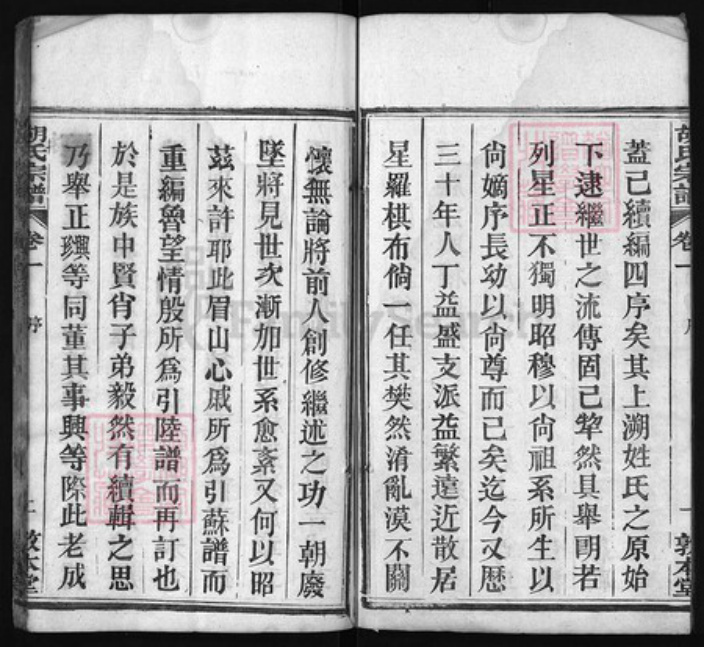 蓋已續編四序矣其上溯姓氏之原始
下逮繼世之流傳固已犂然具舉明若
列星正不獨明昭穆以尙祖系所生以
尙嫡序長幼以尙尊而已矣迄今又歷
三十年人丁益盛支派益繁遠近散居
星羅棋布倘一任其樊然淆亂漠不關
懷無論將前人創修繼述之功一朝廢
墜將見世次漸加世系愈紊又何以昭
茲來許耶此眉山心戚所爲引蘇譜而
重編魯望情殷所爲引陸譜而再訂也
於是族中賢肖子弟毅然有續輯之思
乃舉正興等同董其事興等際此老成
胡氏宗譜
卷一
序
敦本堂
胡氏宗譜
卷一
敦本堂
FamilySearch